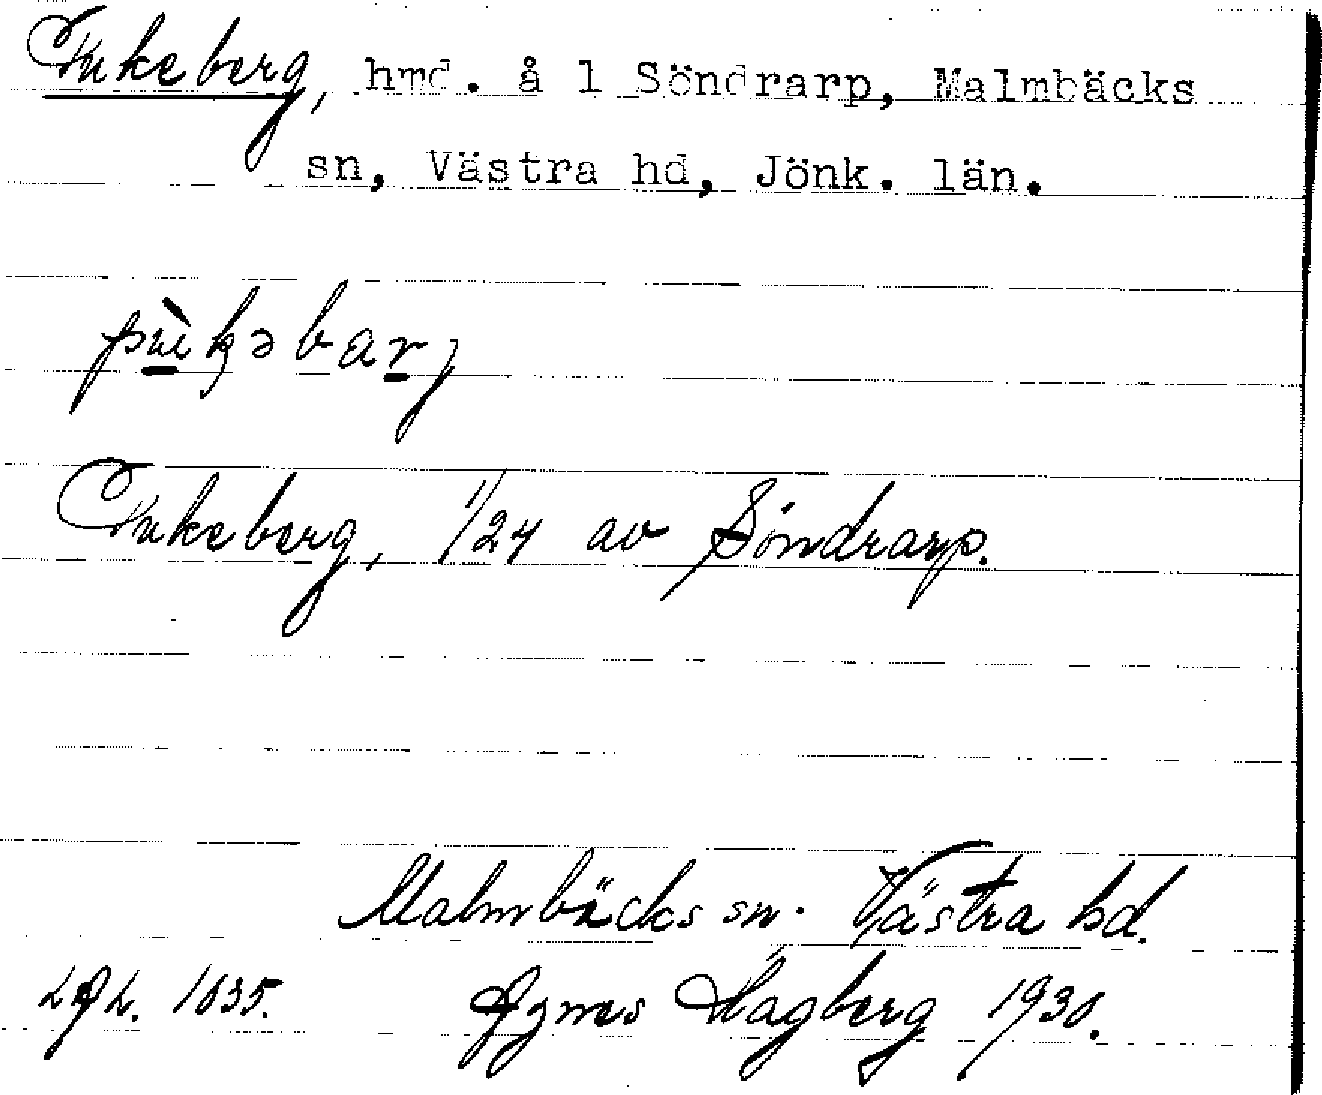 Pukeberg, hmd. å 1 Söndrarp, Malmbäcks
sn, Västra hd, Jönk. län.
Pukeberg, 1/24 av Söndrarp.
Malmbäcks sn. Västra hd.
1035. Agnes Hagberg 1930.